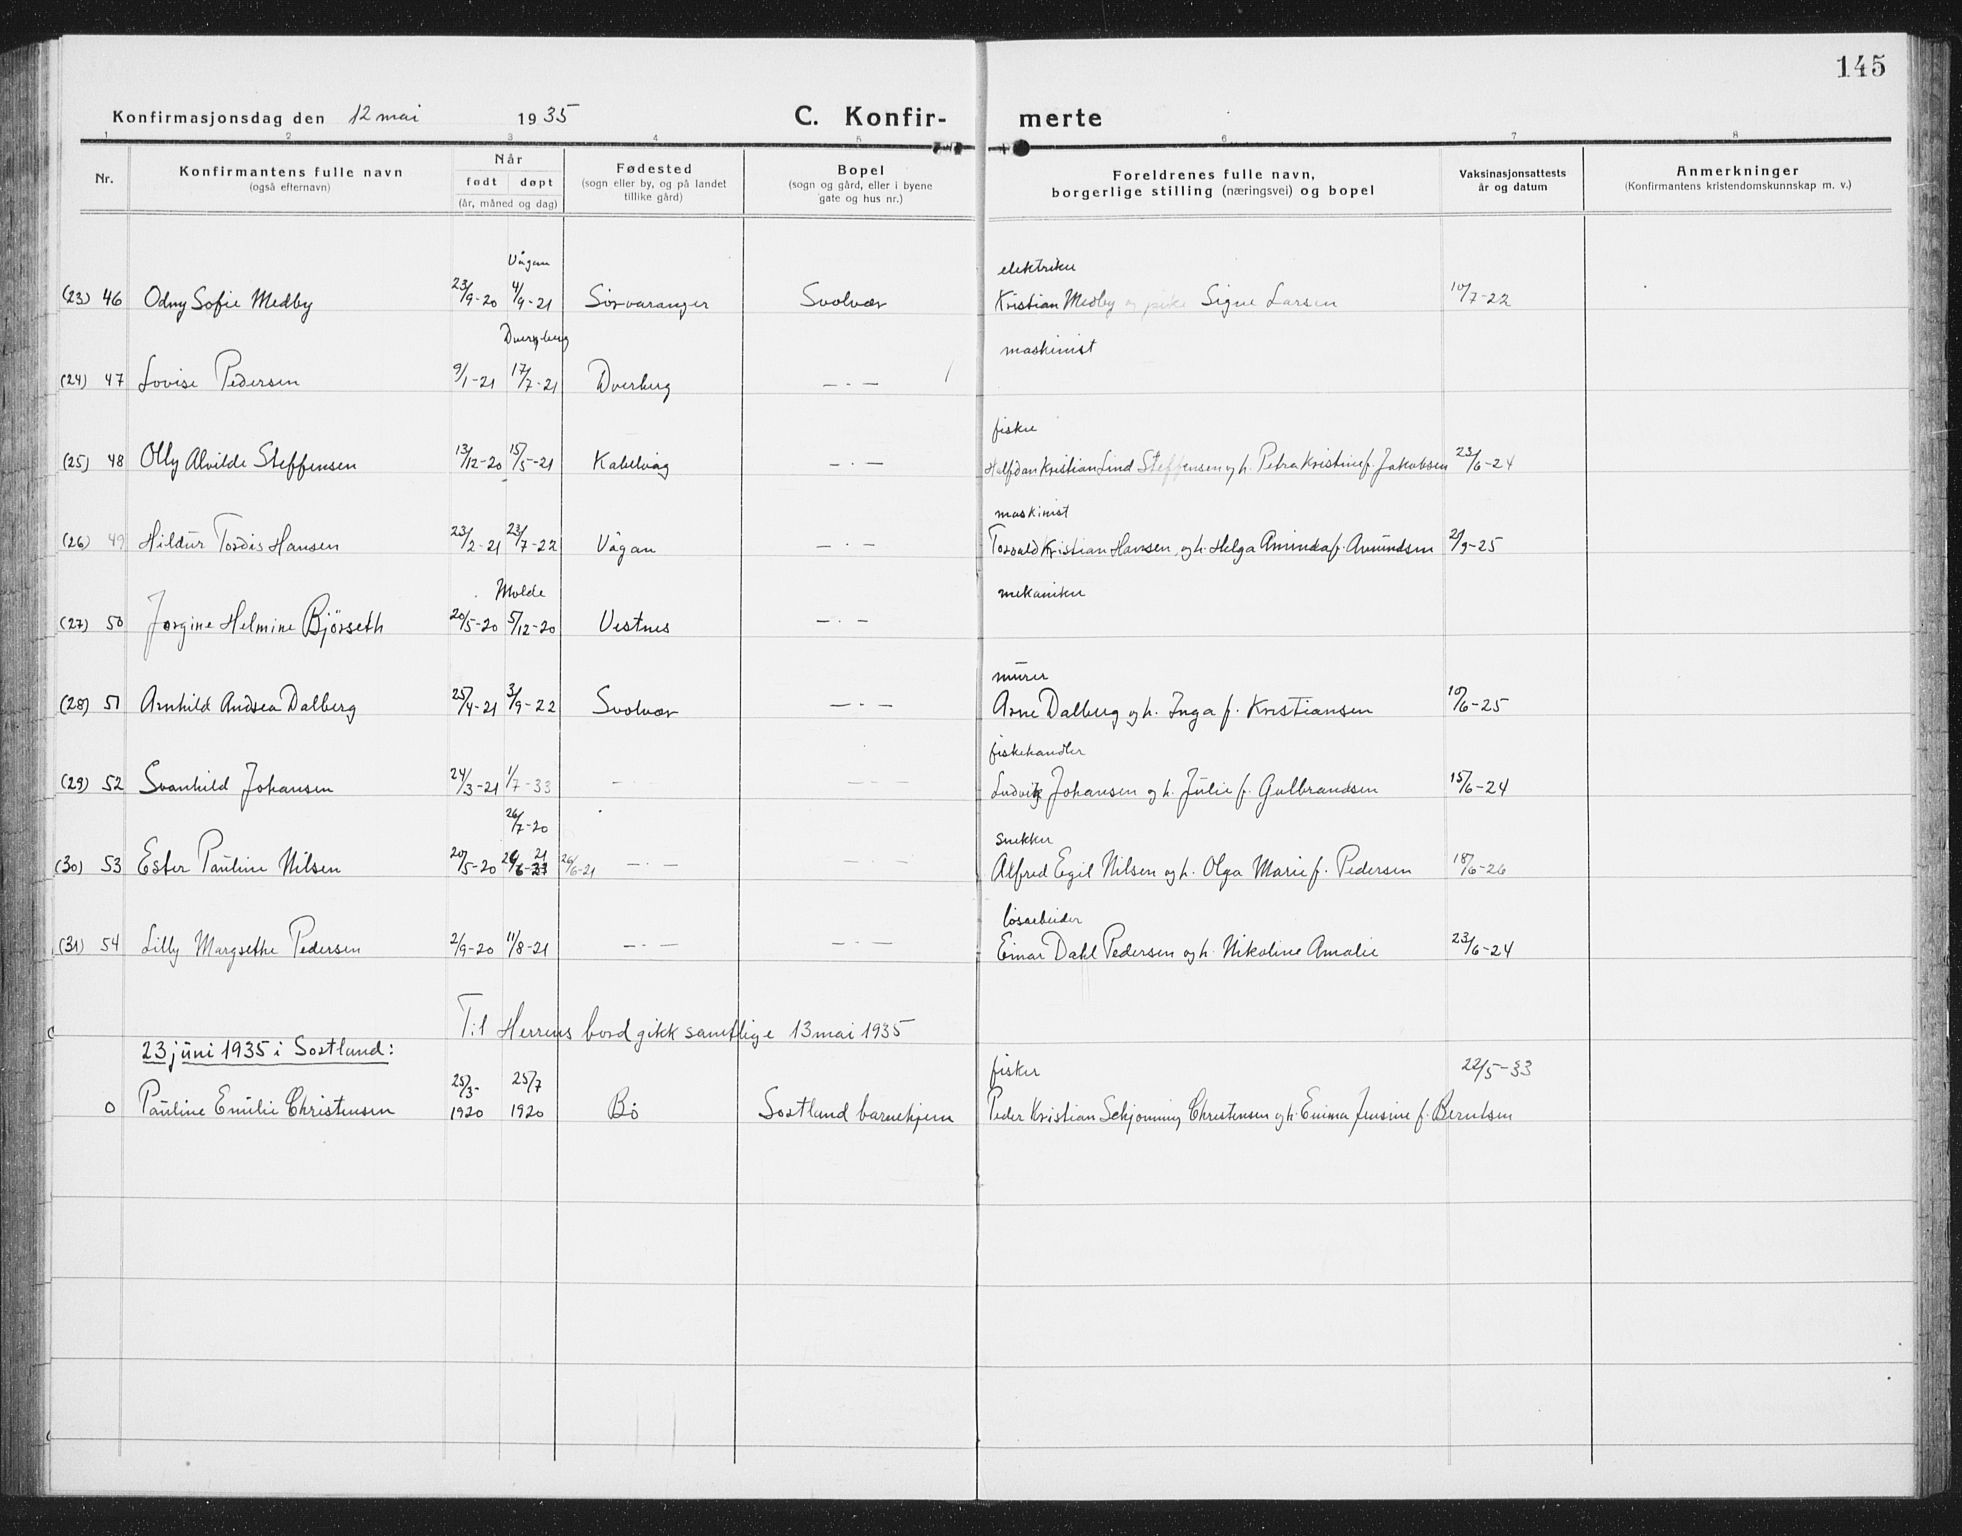 145
Konfirmasjonsdag den 12 mai 1935 C. Konfir- merte
1 2 3 4 5 6 7 8
Nr. Konfirmantens fulle navn (også efternavn) Når født døpt (år, måned og dag) Fødested (sogn eller by, og på landet tillike gård) Bopel (sogn og gård, eller i byene gate og hus nr.) Foreldrenes fulle navn, borgerlige stilling (næringsvei) og bopel Vaksinasjonsattests år og datum Anmerkninger (Konfirmantens kristendomskunnskap m. v.)
Vågan elektriker
(23) 46 Odny Sofie Medby 23/9-20 4/9-21 Sørvaranger Svolvær Kristian Medby og pike Signe Larsen 10/7-22
Dverberg maskinist
(24) 47 Lovise Pedersen 9/1-21 17/7-21 Dverberg — . —
fisker
(25) 48 Olly Alvilde Steffensen 13/12-20 15/5-21 Kabelvåg — . — Halfdan Kristian Lind Steffensen og h. Petra Kristine f. Jakobsen 23/6-24
maskinist
(26) 49 Hildur Tordis Hansen 23/2-21 23/7-22 Vågan — . — Torvald Kristian Hansen, og h. Helga Aminda f. Amundsen 2/9-25
Molde mekaniker
(27) 50 Jorgine Helmine Bjørseth 20/5-20 5/12-20 Vestnes — . —
murer
(28) 51 Arnhild Andrea Dalberg 25/4-21 3/9-22 Svolvær — . — Arne Dalberg og h. Inga f. Kristiansen 10/6-25
fiskehandler
(29) 52 Svanhild Johansen 24/3-21 1/7-33 — . — — . — Ludvik Johansen og h. Julie f. Gulbrandsen 15/6-24
26/7-20 snekker
(30) 53 Ester Pauline Nilsen 20/5-20 26/6-21 26/6-21 — . — — . — Alfred Egil Nilsen og h. Olga Marie f. Pedersen 18/6-26
løsarbeider
(31) 54 Lilly Margrethe Pedersen 2/9-20 11/8-21 — . — — . — Einar Dahl Pedersen og h. Nikoline Amalie 23/6-24
Til Herrens bord gikk samtlige 13 mai 1935
23 juni 1935 i Sortland:
25/3- 25/7 fisker 22/5-33
0 Pauline Emilie Christensen 1920 1920 Bø Sortland barnehjem Peder Kristian Schjønning Christensen og h. Emma Jensine f. Berntsen